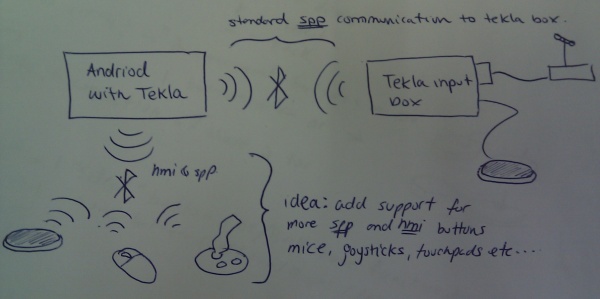 standard spp communication to tekla box.
Andriod
with Tekla
Tekla input
box
hmi & spp
idea: add support for
more spp and hmi buttons
mice, joysticks, touchpads etc....